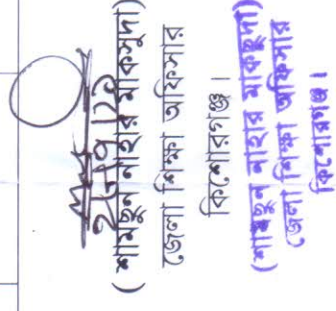 (শামছুন নাহার মাকসুদা)
জেলা শিক্ষা অফিসার
কিশোরগঞ্জ।
(শামছুন নাহার মাকছুদা)
জেলা শিক্ষা অফিসার
কিশোরগঞ্জ।